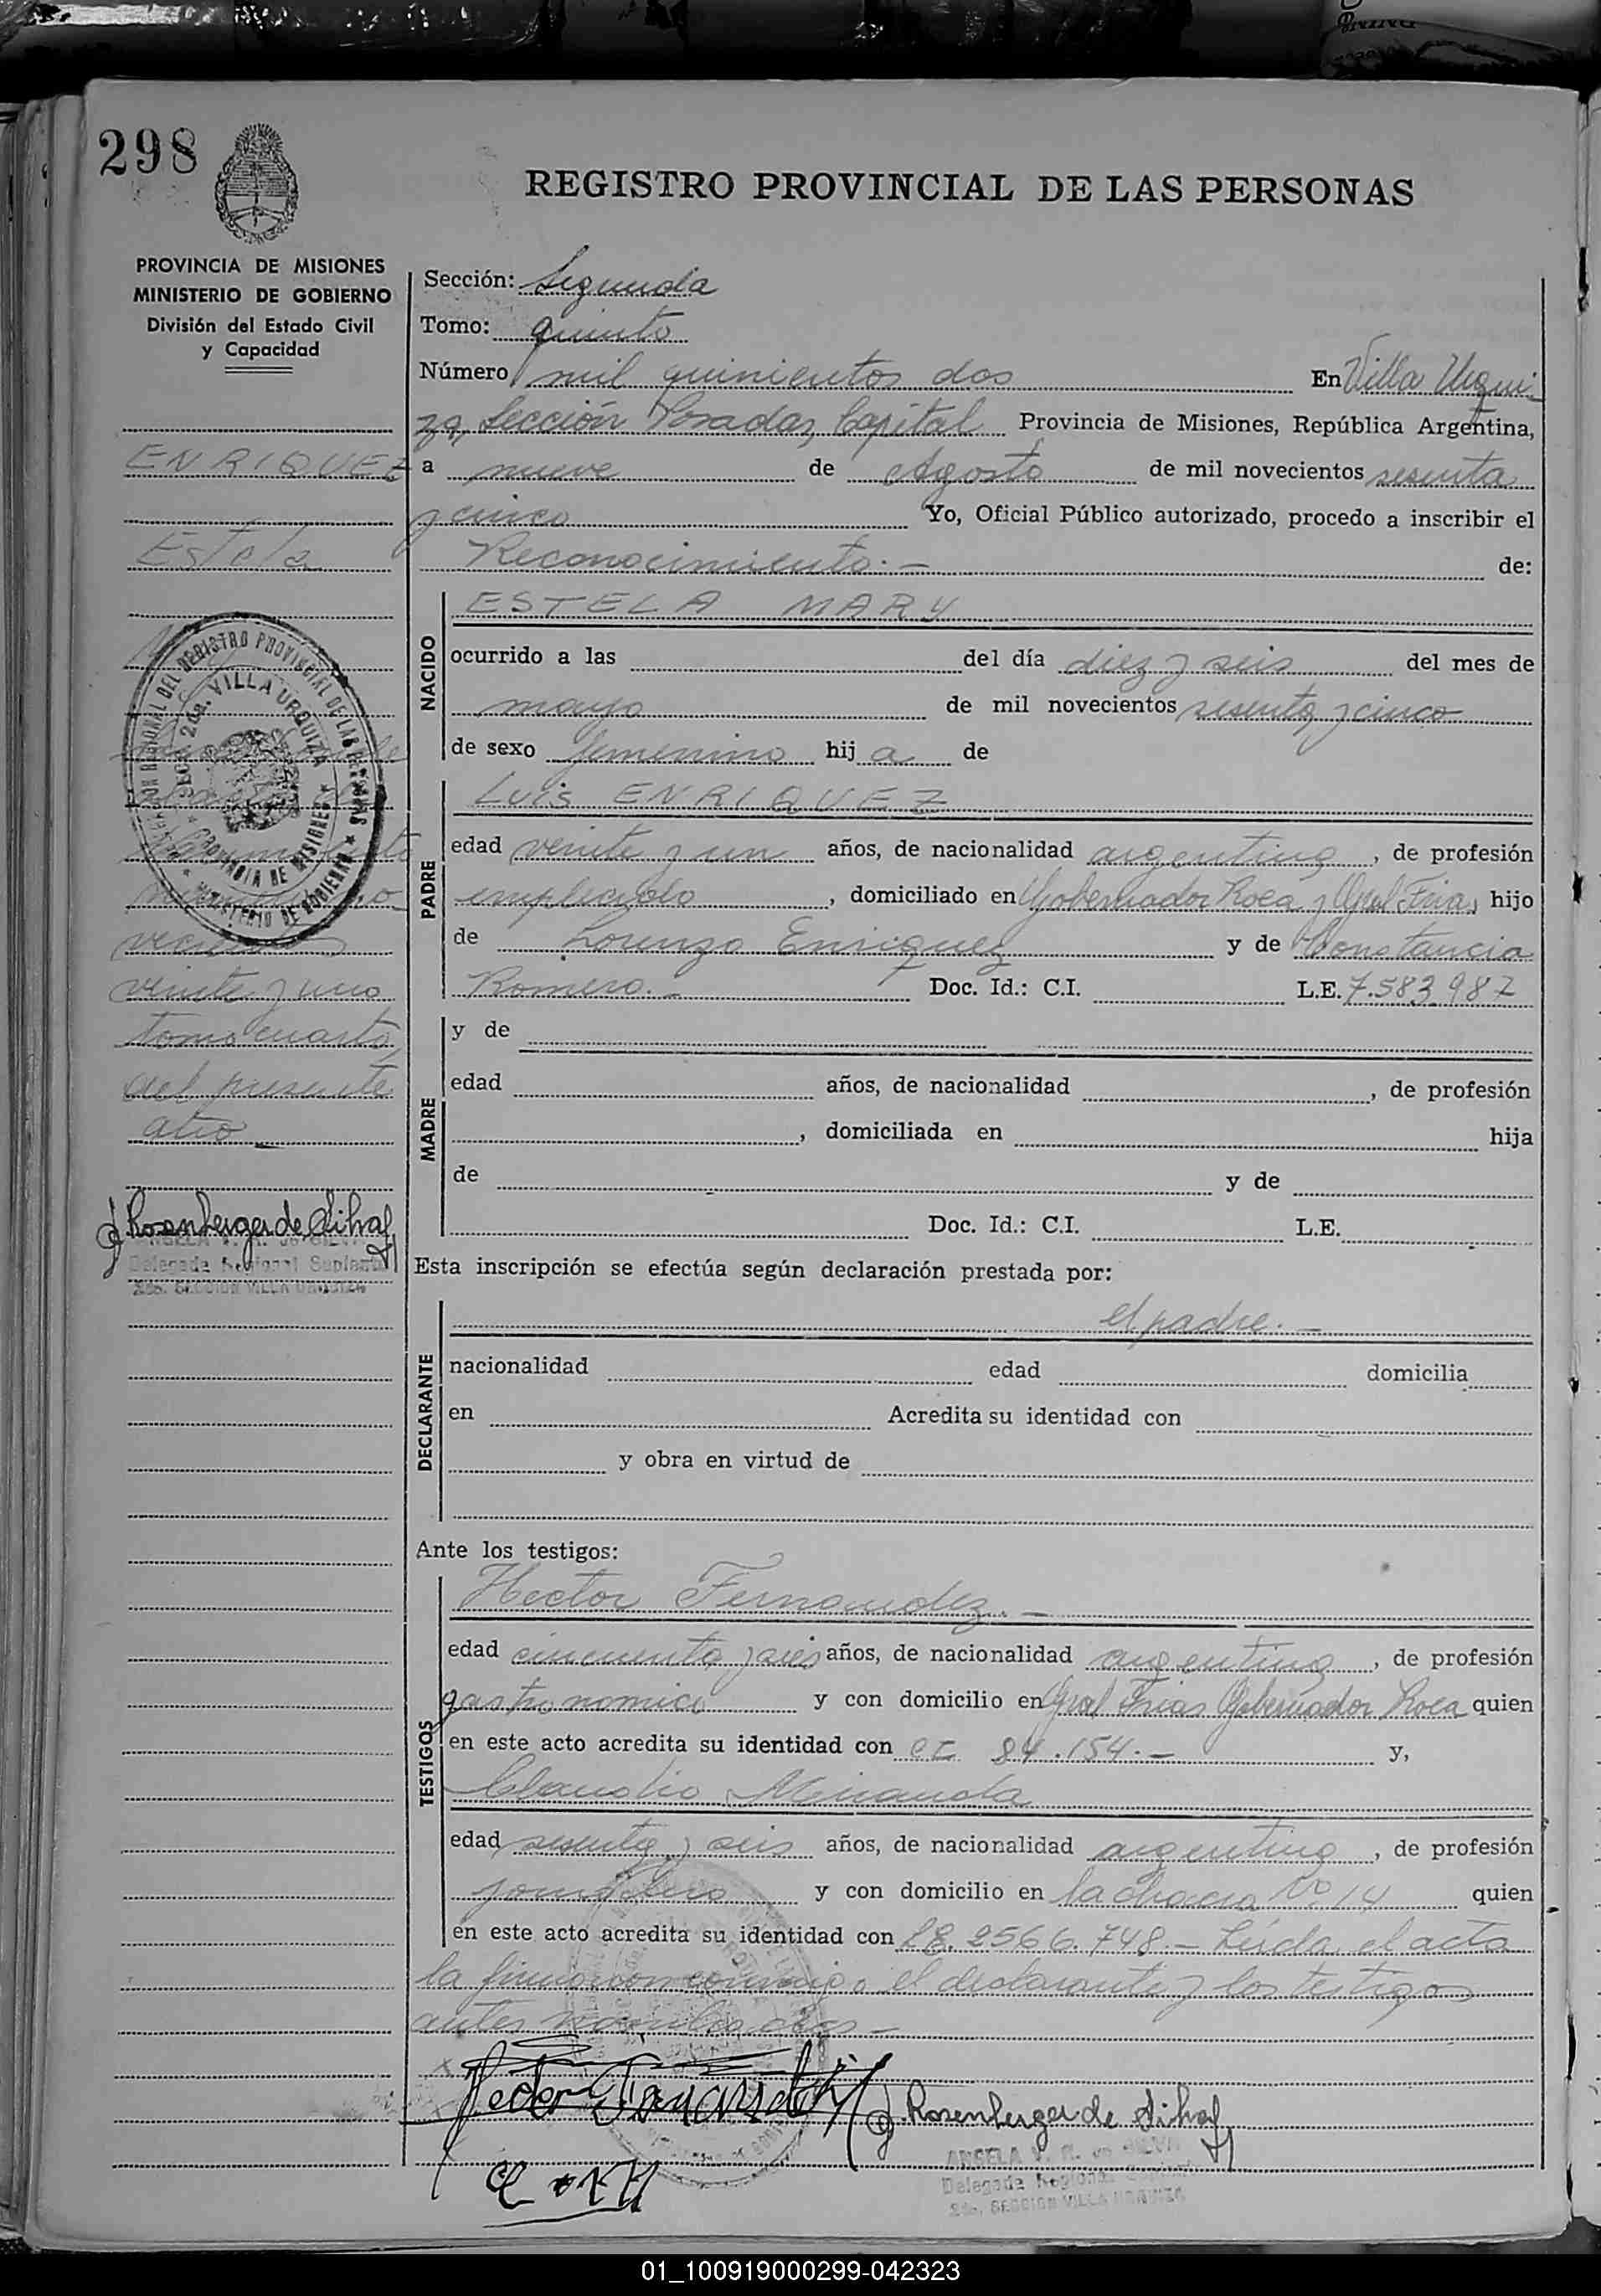 298
REGISTRO PROVINCIAL DE LAS PERSONAS
PROVINCIA DE MISIONES
MINISTERIO DE GOBIERNO
División del Estado Civil
y Capacidad
ENRIQUEZ
Estela
veinte y uno
tomo cuarto,
del presente
año
Rosenberger de Silva
Delegada Regional Suplente
2da. SECCION VILLA URQUIZA
Sección: Segunda
Tomo: quinto
Número mil quinientos dos En Villa Urqui-
za, Sección Posadas, Capital Provincia de Misiones, República Argentina,
a nueve de Agosto de mil novecientos sesenta
y cinco Yo, Oficial Público autorizado, procedo a inscribir el
Reconocimiento.- de:
NACIDO
ESTELA MARY
ocurrido a las del día diez y seis del mes de
mayo de mil novecientos sesenta y cinco
de sexo femenino hija de
PADRE
Luis ENRIQUEZ
edad veinte y un años, de nacionalidad argentina, de profesión
empleado, domiciliado en Gobernador Roca y Gral Frias, hijo
de Lorenzo Enriquez y de Constancia
Romero.- Doc. Id.: C.I. L.E. 7.583.987
MADRE
y de
edad años, de nacionalidad , de profesión
, domiciliada en hija
de y de
Doc. Id.: C.I. L.E.
Esta inscripción se efectúa según declaración prestada por:
DECLARANTE
el padre.-
nacionalidad edad domicilia
en Acredita su identidad con
y obra en virtud de
Ante los testigos:
TESTIGOS
Hector Fernandez.-
edad cincuenta y seis años, de nacionalidad argentina, de profesión
gastronomico y con domicilio en Gral Frias Gobernador Roca quien
en este acto acredita su identidad con CI 84.154.- y,
Claudio Miranda
edad sesenta y seis años, de nacionalidad argentina, de profesión
jornalero y con domicilio en la chacra No 14 quien
en este acto acredita su identidad con LE. 2566.748.- Leída el acta
la firman conmigo el declarante y los testigos
antes nombrados-
Rosenberger de Silva
ANGELA V. R. de SILVA
Delegada Regional Suplente
2da. SECCION VILLA URQUIZA
01_100919000299-042323